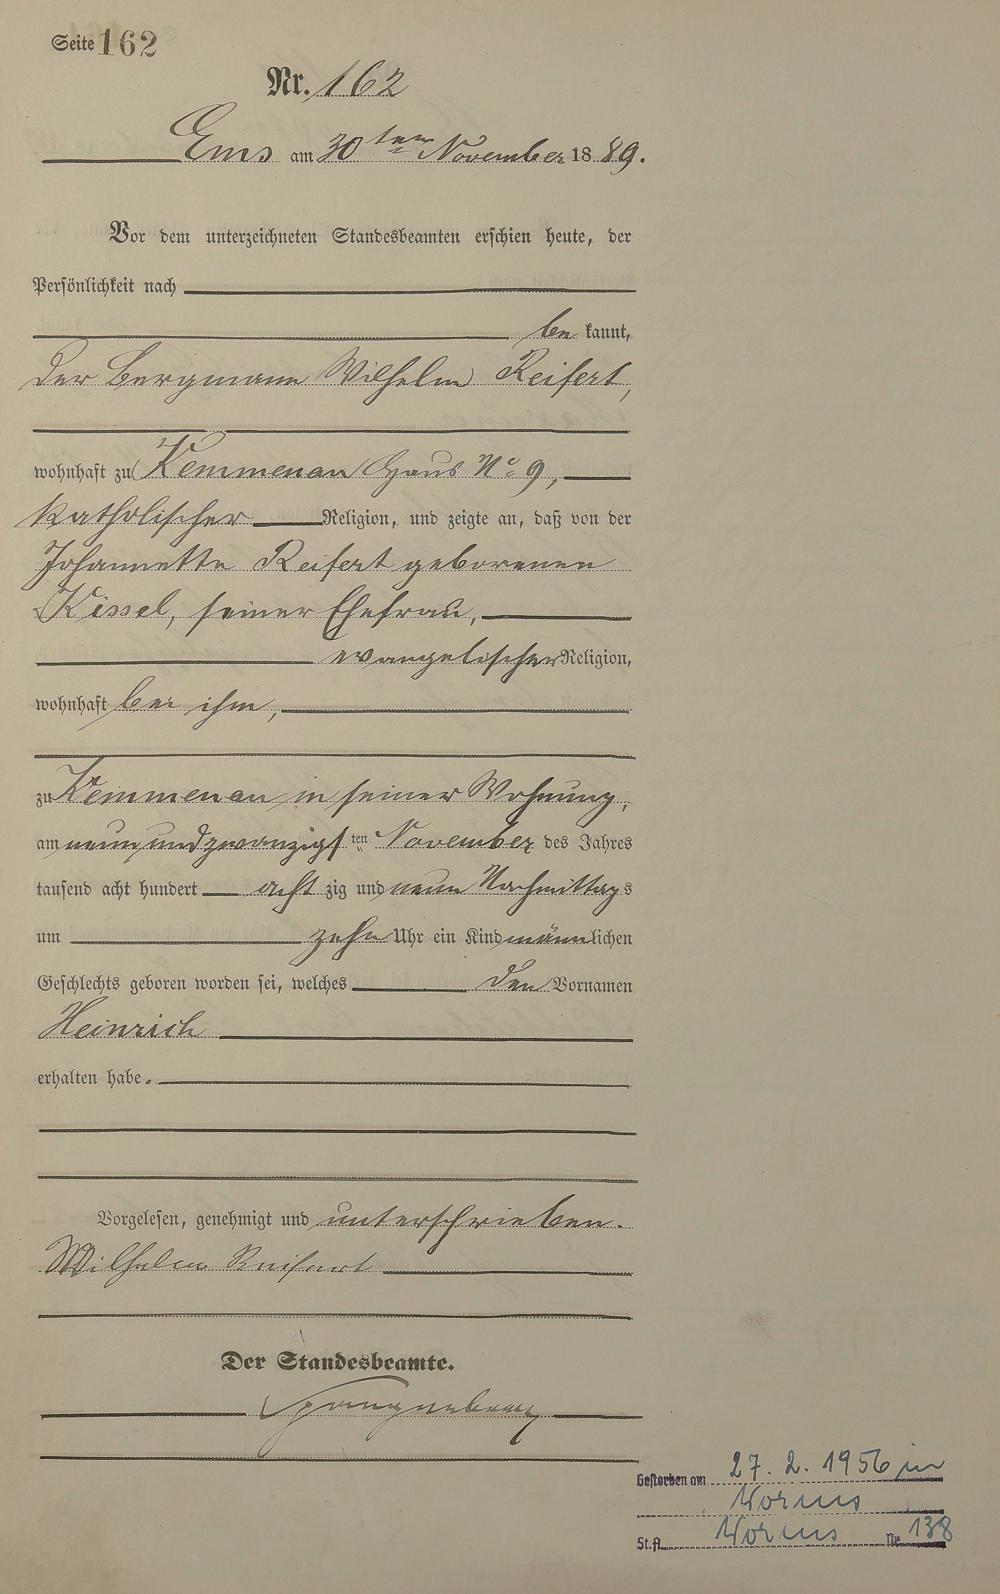 Seite 162
Nr. 162
Ems am 30ten November 1889.
Vor dem unterzeichneten Standesbeamten erschien heute, der
Persönlichkeit nach
be kannt,
der Bergmann Wilhelm Reifert,
wohnhaft zu Kemmenau Haus No 9,
katholischer Religion, und zeigte an, daß von der
Johannette Reifert geborenen
Kissel, seiner Ehefrau,
evangelischer Religion,
wohnhaft bei ihm,
zu Kemmenau in seiner Wohnung,
am neunundzwanzigsten November des Jahres
tausend acht hundert acht zig und neun Nachmittags
um zehn Uhr ein Kind männlichen
Geschlechts geboren worden sei, welches den Vornamen
Heinrich
erhalten habe.
Vorgelesen, genehmigt und unterschrieben.
Wilhelm Reifert
Der Standesbeamte.
Spangenberg
Gestorben am 27. 2. 1956 in
Worms
St.A. Worms Nr. 138